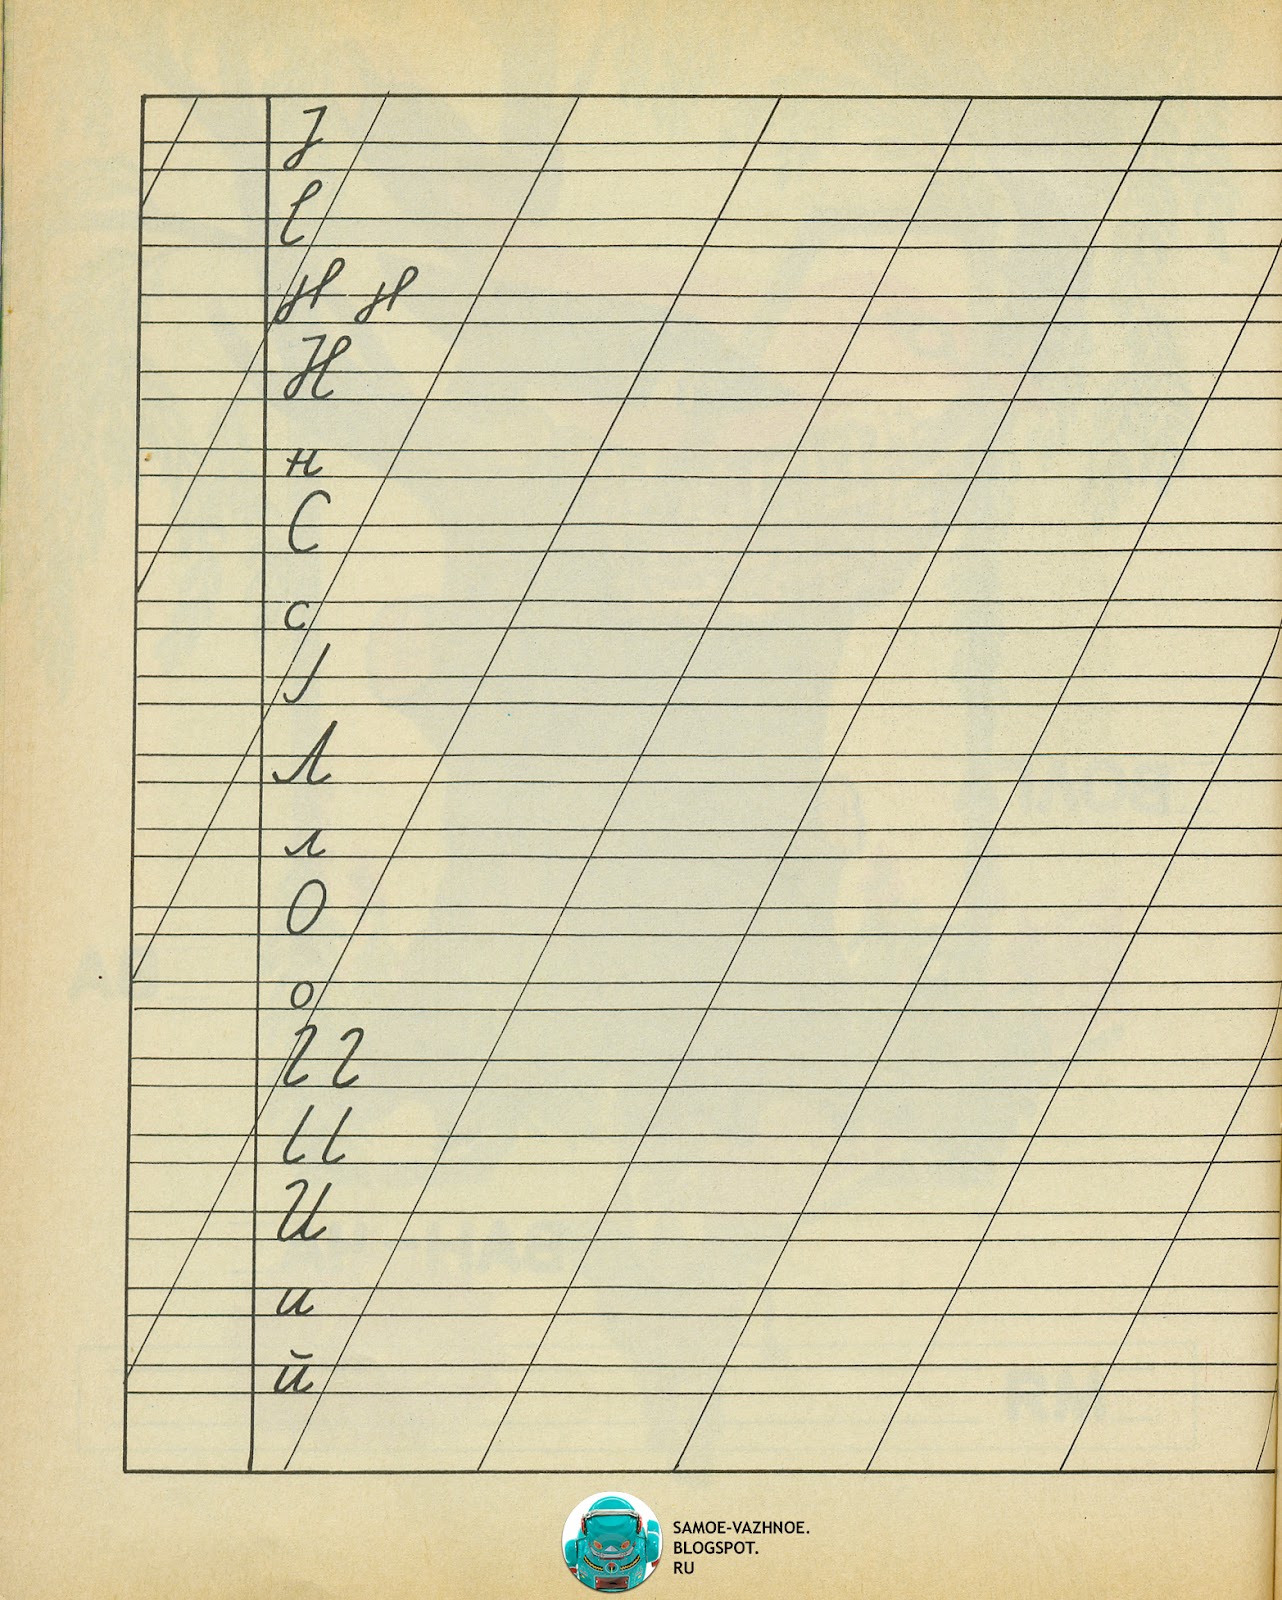 Н
н
С
с
Л
л
О
о
И
и
й
SAMOE-VAZHNOE.
BLOGSPOT.
RU